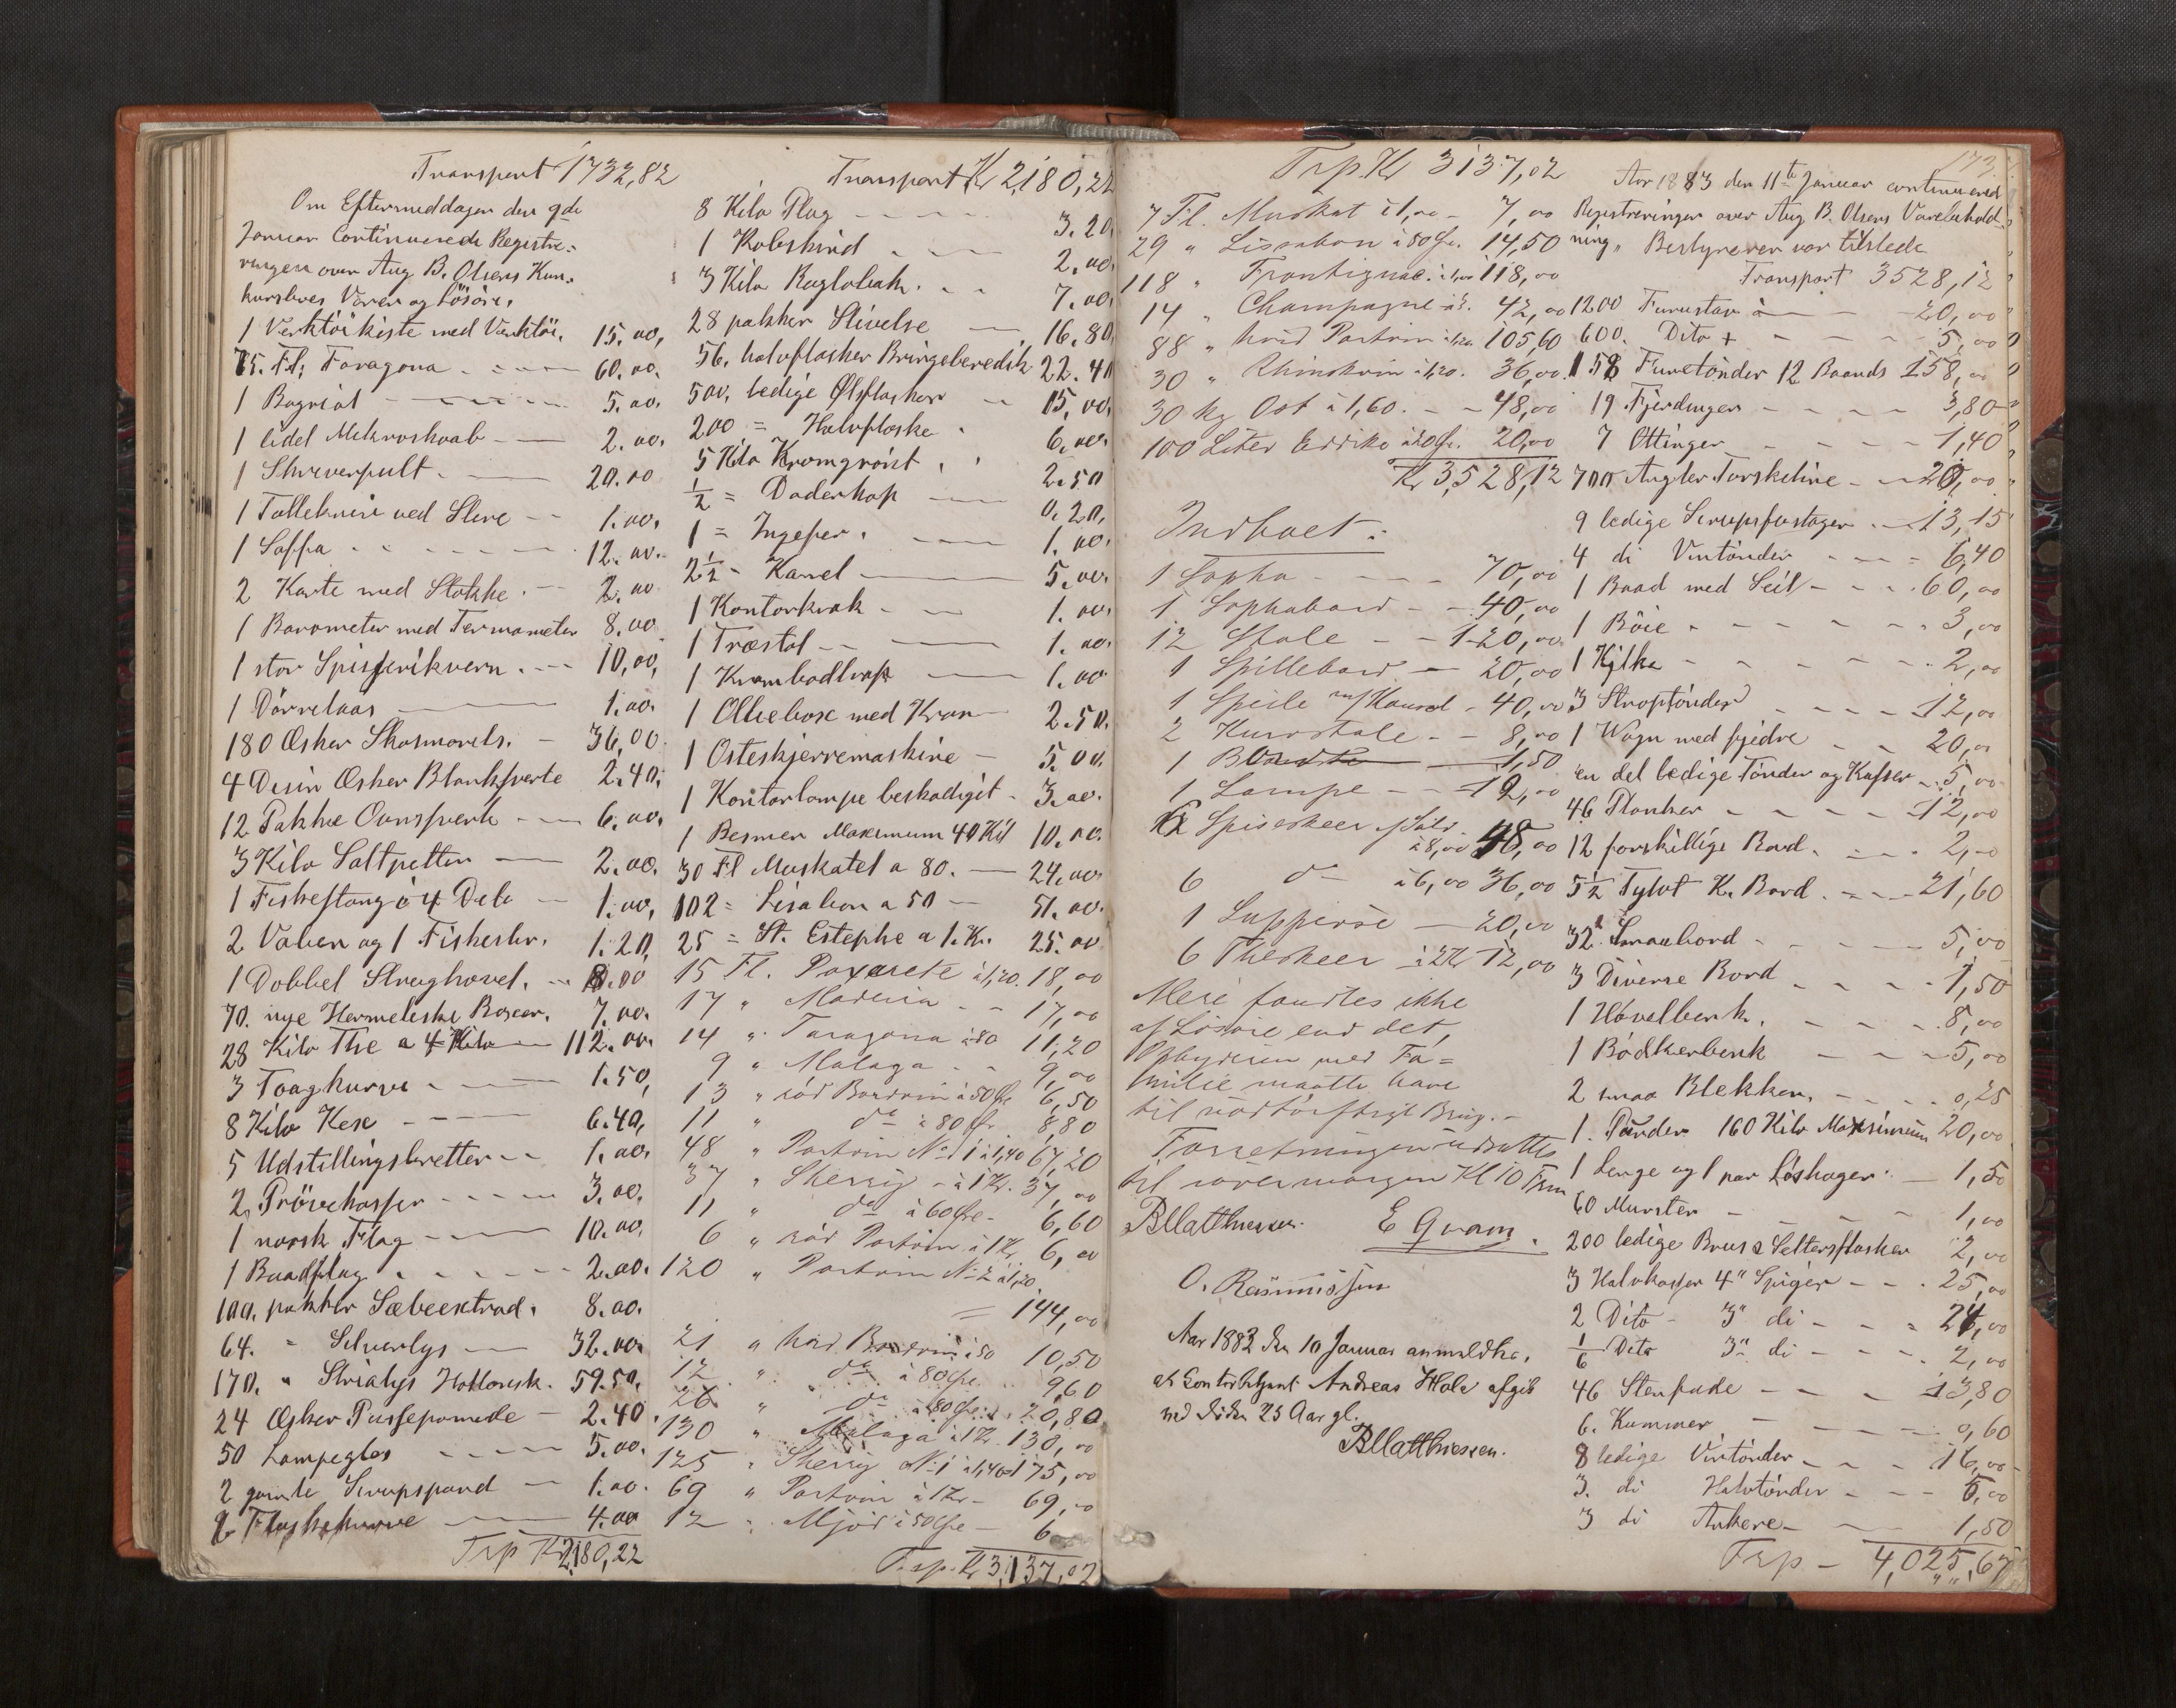 Transport 1732,82
Om Eftermiddagen den 9de
Januar Continuerede Registre-
ringen over Aug B. Olsens Kon-
kursboes Varer og Lösöre.
1 Verktöikiste med Verktöi. 15.00,
75. Fl; Taragona - - - 60.00.
1 - - - 5.00.
1 lidet - - 2.00.
1 Skriverpult. - 20.00
1 Tollekniv ved Slire - - 1.00.
1 Soffa - - - 12.00.
2 Karte med Stokke. - - 2.00
1 Barometer med Termometer 8.00
1 stor - - 10,00,
1 Dörrelaas - 1.00.
180 Æsker - 36,00
4 Desin Æsker Blanksverte 2.40;
12 Pakke Ovnsverte - - 6.00,
3 Kilo Saltpetter - 2.00.
1 Fiskestang i 4 Dele - 1.00,
2 og 1 1.20,
1 Dobbel Strughövel. - - 8.00
70. nye Hermetiske Boxer. 7.00.
28 Kilo The a 4 112.00.
3 Toaghurve - - - 1.50,
8 Kilo Kex - - - 6.40,
5 Udstillingsbretter - - 1.00.
2 Prövekasser - - - 3.00.
1 norsk Flag - - - 10.00.
1 Baadflag - - - 2.00.
100. pakker Sæbeextrad. 8.00.
64. " Silverlys - 32.00
170. " Hollansk. 59.50.
24 Æsker Pussepomede - 2.40.
50 Lampeglas - - - 5.00.
2 gamle Sirupspand - 1.00.
2 Flaskekurve - 4.00
Trp Kr 2180,22
Transport Kr 2180,22
8 Kilo Plug - - - 3.20,
1 Kobeskind - - 2.00.
3 Kilo - - 7.00,
28 pakker Stivelse - 16.80,
56. halvflasker Bringeberedik 22.40
500, ledige Ølflasker - 15,00,
200 = Halvflaske - 6,00.
5 Kilo Kromgrönt . . 2.50
1/2 = Doderkop - 0.20,
1 = Ingefer. - 1.00.
2 1/2 = Kanel - 5.00.
1 Kontorkrak - - 1.00.
1 Træstol - - - 1.00.
1 - 1.00
1 med Kran - 2.50.
1 Osteskjerremaskine - 5.00.
1 Kontorlampe beskadiget - 3.00.
1 Besmer Maximum 40 Kil 10.00.
30 Fl Muskatel a 80. - 24.00
102 = Lisabon a 50 - 51.00.
25 = St. Estephe a 1. Kr. 25.00
15 Fl. Paxarete à 1,20. 18,00
17 " Madeira - - 17,00
14 " Taragona à 80 11,20
9 " Malaga - - 9,00
13 " röd Bordvin à 50 Øre 6,50
11 " do à 80 Ør 8,80
48 " Portvin No 1 à 1,40 67,20
37 " Sherry - à 1 Kr. 37,00
11 " do à 60 Øre - 6,60
6 " röd Portvin à 1 Kr. 6,00
120 " Portvin No 2 à 1,20
= 144,00
21 " hvid Bordvin à 50 10,50
12 " do à 80 Øre .. 9,60
26 " do à 80 Øre 20,80
130 " Malaga à 1 Kr. 130,00
125 " Sherry No 1 à 1,40 175,00
69 " Portvin à 1 Kr - 69,00
12 " Mjöd à 50 Øre - 6
Trsp. Kr 3,137,02
Trp. Kr 3137,02
7 Fl. Muskat à 1,00 - 7,00
29 " Lissabon à 50 Øre. 14,50
118 " Frontignac. à 1,00 118,00
14 " Champagne à 3. 42,00
88 " hvid Portvin à 1,20 105,60
30 " Rhinskvin à 1,20. 36,00.
30 kg Ost à 1,60. - - 48,00
100 Liter Eddike à 20 Ør. 20,00
Kr 3,528,12
Indboet:
1 Sopha - - - 70,00
1 Sophabord - - 40,00
12 Stole - - 120,00
1 Spillebord - 20,00
1 Speile m/ Konsol - 40,00
2 Kurvstole - - 8,00
1 - 1,50
1 Lampe - - 12,00
6 Spiseskeer af Sölv
à 8,00 48,00
6 do à 6,00 36,00
1 Suppeöse - 20,00
6 Theskeer - à 2 Kr 12,00
Mere fandtes ikke
af Lösöre end det,
Opbyderen med Fa=
milie maatte have
til nödtörftigt Brug. -
Forretningen udsattes
til iövermorgen Kl 10 Form
B Matthiessen. E Qvam.
O. Rasmussen
Aar 1883 den 10 Januar anmeldtes,
at Contribuent Andreas Hole afgik
ved döden 25 Aar gl.
B Matthiessen.
173.
Aar 1883 den 11te Januar continuered
Registreringen over Aug B. Olsens Varebehold-
ning, Bestyreren var tilstede
Transport 3528,12
1200 Furustav à - - 20,00
600. Dito + - - - 5,00
158 Furetönder 12 Baands 158,00
19 Fjerdinger - - - 3,80
7 Ottinger - - - 1,40
700 Angler Torskeline - - 20,00
9 ledige Sirupsfustager - - 13,15
4 di Vintönder - - - 6,40
1 Baad med Seil - - - 60,00
1 Böie - - - 3,00
1 - - - 2,00
3 - - - 12,00
1 Vogn med fjedre - - 20,00
en del ledige Tönder og Kasser - - 5,00
46 Planker - - - 12,00
12 forskillige Bord. - - 2,00
5 1/2 Tylvt K. Bord. - - 21,60
32 Smaabord - - - 5,00
3 Diverse Bord - - - 1,50
1 Hövelbenk. - - - 8,00
1 Bödkerbenk - - - 5,00
2 smaa Blekker. - - - 0,25
1. Punder 160 Kilo Maximum 20,00
1 Lenge og 1 par Löshager. - 1,50
60 Mursten - - - 1,00
200 ledige Brus & Seltersflasker 2,00
3 Halvkasser 4" Spiger - - 25,00
2 Dito - 3" di - - - 24,00
1/6 Dito 3" di - - - 2,00
46 - - - 13,80
6. Kummer - - - 0,60
8 ledige Vintönder - - - 16,00
3. di Halvtönder - - - 5,00
3 di Ankere - - 1,50
Trp - 4,025,67